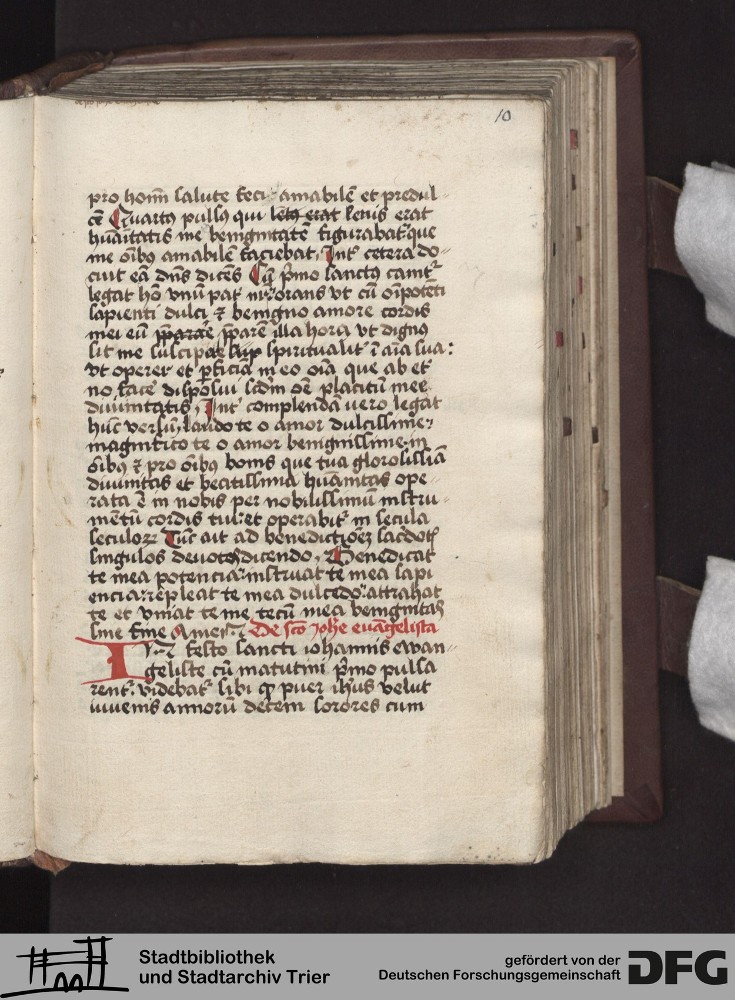 10
pro homī salute feci amabilē et predul
cē Quartꝰ pulsꝰ qui lenis erat
hūaītatis me benignitatē figurabat que
me oībꝰ amabilē faciebat, Int̄ cetera do
cuit eā dn̄s dicēs primo sanctus
legat hō vnū pat̄ nr̄ orans vt cū oīpotēti
sapienti dulci ⁊ benigno amore cordis
mei eū sparare sparē illa hora vt dignꝰ
sit me suscipe spiritualit̄ ī aīa sua:
vt operer et ꝑficiā in eo oīa que ab et
no face disposui scd̄m oē placitū mee
diuinitatis, Int̄ complendā vero legat
hūc versū, laudo te o amor dulcissime:
magnifico te o amor benignissime in
oībꝰ ⁊ pro oībꝰ bonis que tua glorosissiā
diuinitas et beatissima hūanitas ope
rata ē in nobis per nobilissimū instru
mētū cordis tui: et operabit̄ in secula
seculoꝝ Tūc ait ad benedictiōeꝫ sacdotꝭ
singulos deuotos dicendo, Benedicat
te mea potencia: instruat te mea sapi
encia: repleat te mea dulcedo: attrahat
te et vniat te me tecū mea benignitas
sine fine Amen De scō Johē euāgelista
In festo sancti iohannis ewan
geliste cū matutini pͥmo pulsa
rent̄: videbat̄ sibi ꝙ puer ihūs velut
iuuenis annorū decem sorores cum
Stadtbibliothek
und Stadtarchiv Trier
gefördert von der
Deutschen Forschungsgemeinschaft
DFG